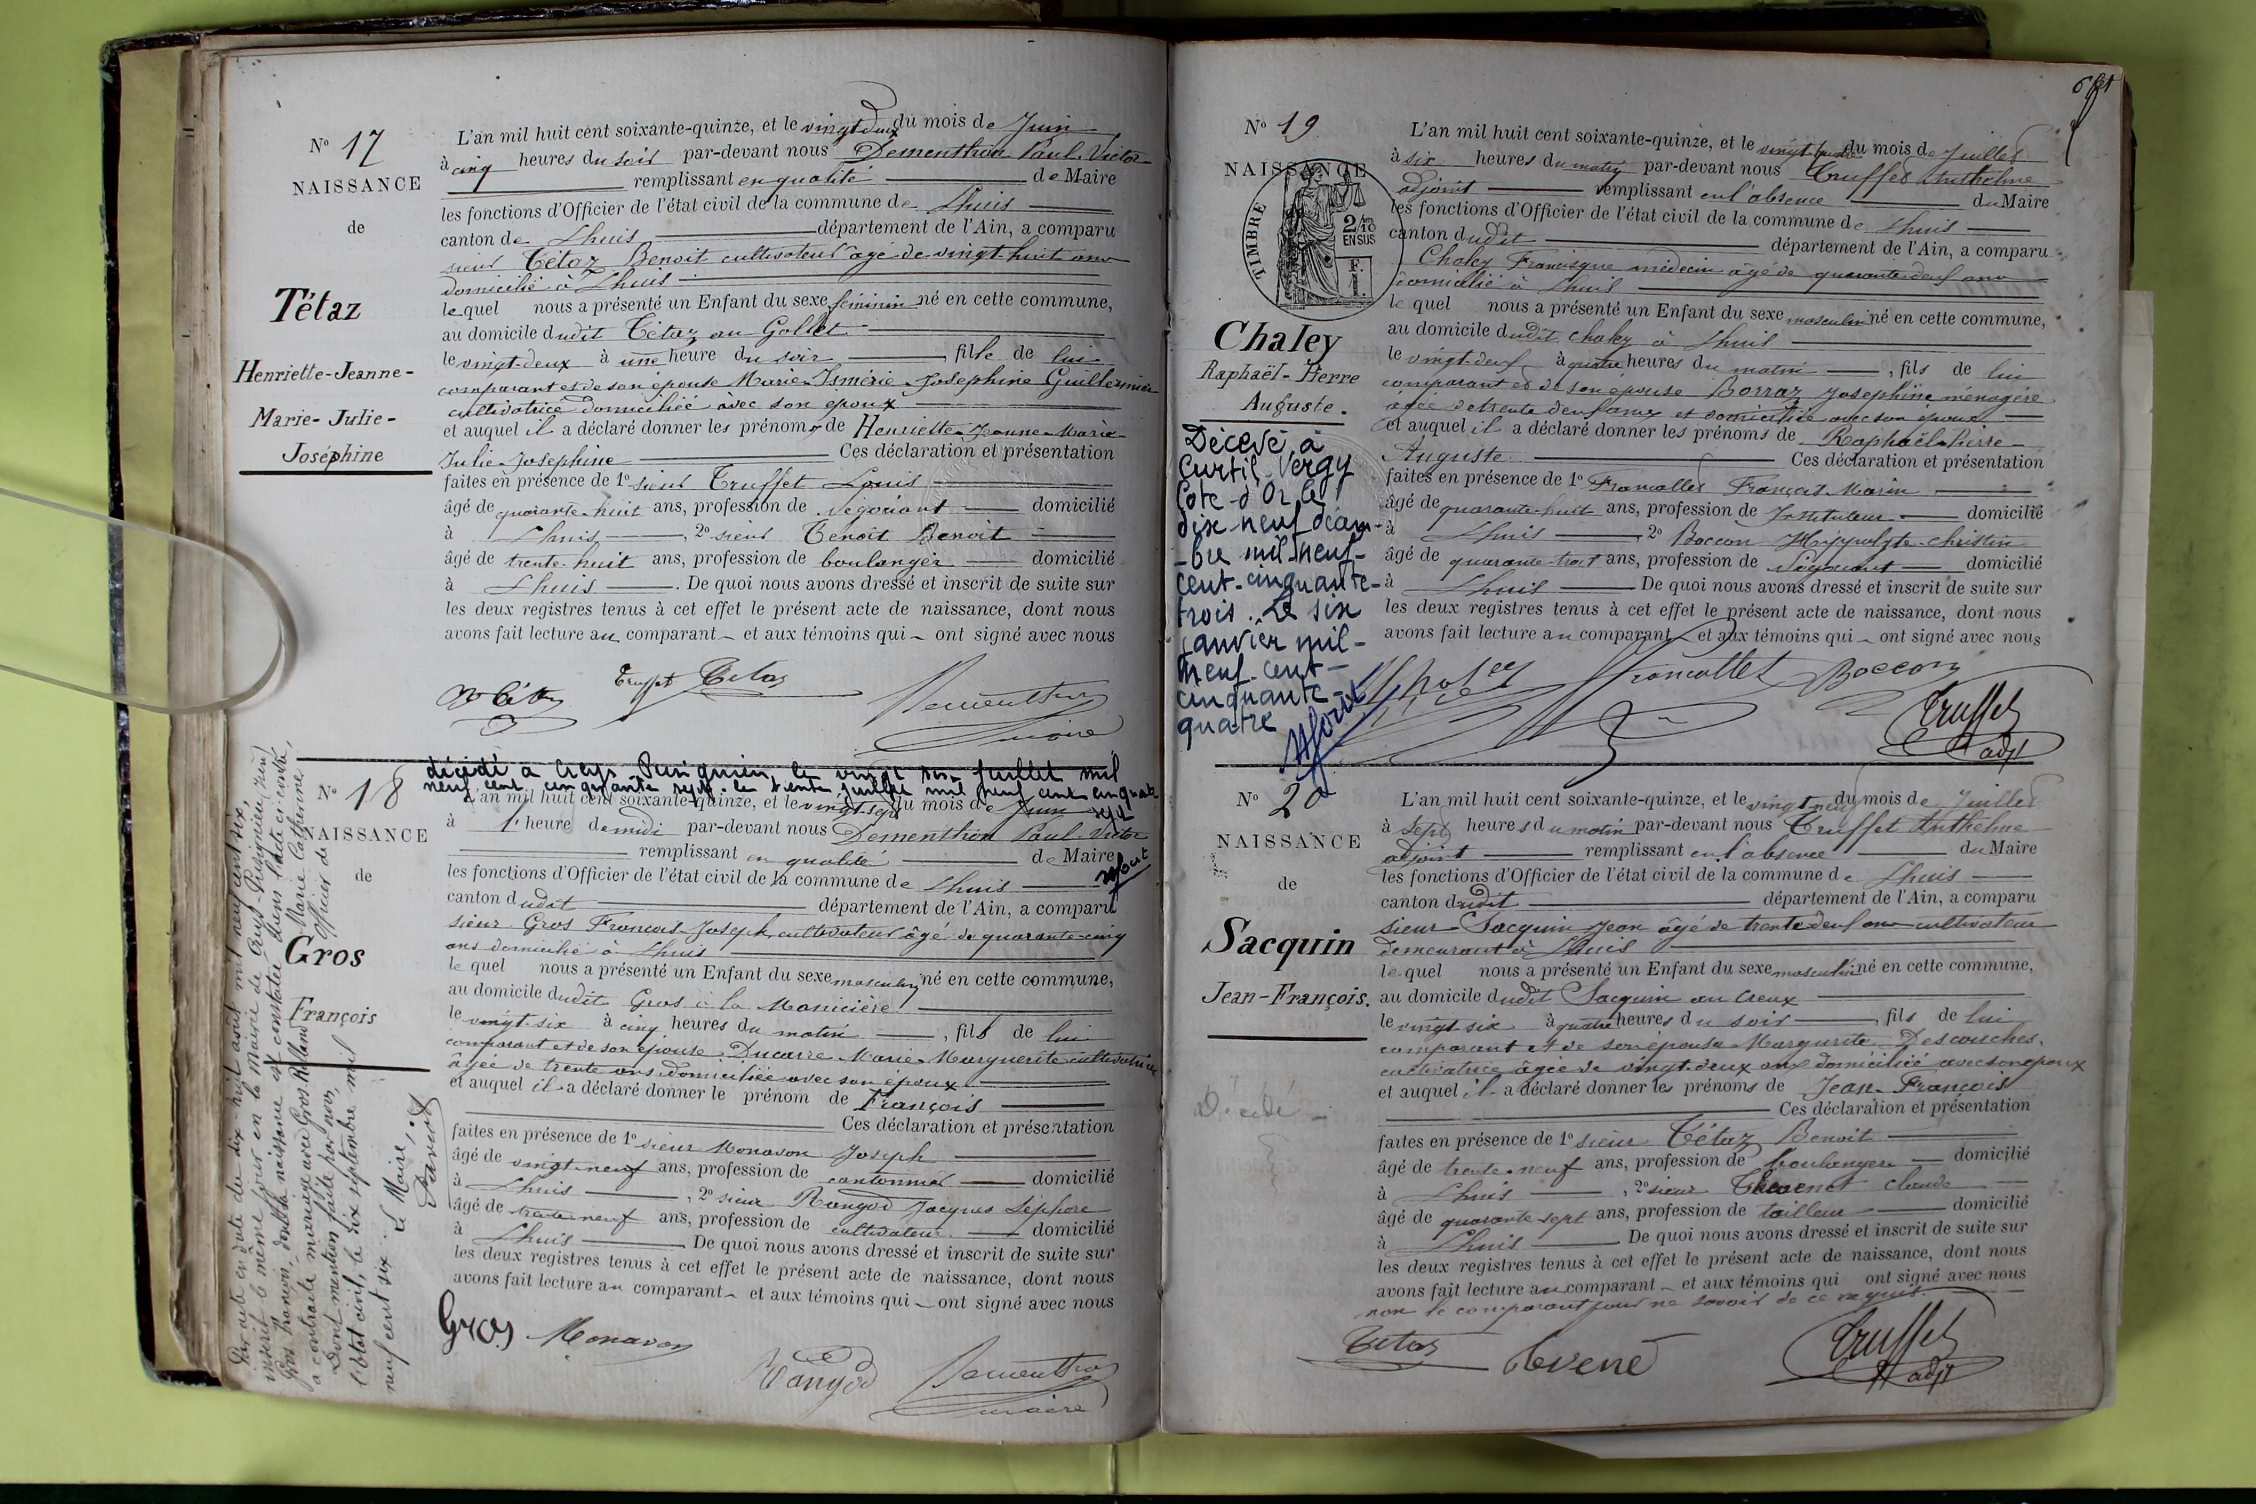 N° 17
NAISSANCE
de
Tétaz
Henriette-Jeanne-
Marie-Julie-
Joséphine
L'an mil huit cent soixante-quinze, et le vingt deux du mois de Juin
à cinq heures du soir par-devant nous Dementhon Paul-Victor
remplissant en qualité de Maire
les fonctions d'Officier de l'état civil de la commune de Lhuis
canton de Lhuis département de l'Ain, a comparu
sieur Tétaz Benoit cultivateur âgé de vingt-huit ans
domicilié à Lhuis
lequel nous a présenté un Enfant du sexe féminin né en cette commune,
au domicile dudit Tétaz au Gollet
le vingt-deux à une heure du soir, fille de lui
comparant et de son épouse Marie-Ismérie-Josephine Guillermier
cultivatrice domiciliée avec son époux
et auquel il a déclaré donner les prénoms de Henriette-Jeanne-Marie-
Julie-Josephine Ces déclaration et présentation
faites en présence de 1° sieur Truffet Louis
âgé de quarante-huit ans, profession de négociant domicilié
à Lhuis, 2° sieur Benoit
âgé de trente-huit ans, profession de boulanger domicilié
à Lhuis. De quoi nous avons dressé et inscrit de suite sur
les deux registres tenus à cet effet le présent acte de naissance, dont nous
avons fait lecture au comparant et aux témoins qui ont signé avec nous
Truffet Tetaz
Dementhon
maire
décédé à Creys-Pusignieu, le vingt six juillet mil
neuf cent cinquante sept. le trente juillet mil neuf cent cinquante
sept
N° 18
NAISSANCE
de
Gros
François
L'an mil huit cent soixante-quinze, et le vingt-sept du mois de Juin
à 1 heure de midi par-devant nous Dementhon Paul-Victor
remplissant en qualité de Maire
les fonctions d'Officier de l'état civil de la commune de Lhuis
canton dudit département de l'Ain, a comparu
sieur Gros François Joseph, cultivateur âgé de quarante-cinq
ans domicilié à Lhuis
lequel nous a présenté un Enfant du sexe masculin né en cette commune,
au domicile dudit Gros à la Manicière
le vingt-six à cinq heures du matin, fils de lui
comparant et de son épouse Ducarre Marie-Marguerite cultivatrice
âgée de trente ans domiciliée avec son époux
et auquel il a déclaré donner le prénom de François
Ces déclaration et présentation
faites en présence de 1° sieur Monavon Joseph
âgé de vingt-neuf ans, profession de cantonnier domicilié
à Lhuis, 2° sieur Rangod Jacques Séphore
âgé de trente-neuf ans, profession de cultivateur domicilié
à Lhuis De quoi nous avons dressé et inscrit de suite sur
les deux registres tenus à cet effet le présent acte de naissance, dont nous
avons fait lecture au comparant et aux témoins qui ont signé avec nous
Gros Monavon
Rangod Dementhon
maire
Par acte en date du dix huit août mil neuf cent six,
inscrit le même jour en la Mairie de Creys-Pusignieu, Isère
Gros François, dont la naissance est constatée dans l'acte ci-contre,
a contracté mariage avec Gros-Rolland Marie Catherine
Dont mention faite par nous, Officier de
l'état civil, le dix septembre mil
neuf cent six. Le Maire,
N° 19
NAISSANCE
TIMBRE
2/10
EN SUS
F.
1.
Chaley
Raphaël-Pierre
Auguste.
Décédé à
Curtil-Vergy
Côte-d'Or, le
dix-neuf décem-
-bre mil-neuf-
cent-cinquante-
trois. Le six
janvier mil-
neuf-cent-
cinquante-
quatre
L'an mil huit cent soixante-quinze, et le du mois de Juillet
à six heures du matin par-devant nous Truffet Anthelme
adjoint remplissant en l'absence du Maire
les fonctions d'Officier de l'état civil de la commune de Lhuis
canton dudit département de l'Ain, a comparu
Chaley Francisque médecin âgé de quarante-deux ans
domicilié à Lhuis
lequel nous a présenté un Enfant du sexe masculin né en cette commune,
au domicile dudit Chaley à Lhuis
le vingt-deux à quatre heures du matin, fils de lui
comparant et de son épouse Borraz Josephine ménagère
âgée de trente deux ans et domiciliée avec son époux
et auquel il a déclaré donner les prénoms de Raphaël-Pierre-
Auguste Ces déclaration et présentation
faites en présence de 1° Francallet François Marin
âgé de quarante-huit ans, profession de Instituteur domicilié
à Lhuis 2° Boccon Hyppolyte-Christin
âgé de quarante-trois ans, profession de Négociant domicilié
à Lhuis De quoi nous avons dressé et inscrit de suite sur
les deux registres tenus à cet effet le présent acte de naissance, dont nous
avons fait lecture au comparant et aux témoins qui ont signé avec nous
Chaley Francallet Boccon
Truffet
adjt
N° 20
NAISSANCE
de
Sacquin
Jean-François.
Décédé
L'an mil huit cent soixante-quinze, et le vingt neuf du mois de Juillet
à sept heures du matin par-devant nous Truffet Anthelme
adjoint remplissant en l'absence du Maire
les fonctions d'Officier de l'état civil de la commune de Lhuis
canton dudit département de l'Ain, a comparu
sieur Sacquin Jean âgé de trente deux ans cultivateur
demeurant à Lhuis
lequel nous a présenté un Enfant du sexe masculin né en cette commune,
au domicile dudit Sacquin au Creux
le vingt six à quatre heures du soir, fils de lui
comparant et de son épouse Margurite Descouches
cultivatrice âgée de vingt-deux ans domiciliée avec son époux
et auquel il a déclaré donner les prénoms de Jean-François
Ces déclaration et présentation
faites en présence de 1° sieur Tétaz Benoit
âgé de trente-neuf ans, profession de boulanger domicilié
à Lhuis, 2° sieur Thevenet Claude
âgé de quarante-sept ans, profession de tailleur domicilié
à Lhuis De quoi nous avons dressé et inscrit de suite sur
les deux registres tenus à cet effet le présent acte de naissance, dont nous
avons fait lecture au comparant et aux témoins qui ont signé avec nous
non le comparant pour ne savoir de ce requis
Tetaz Tevene Truffet
adjt